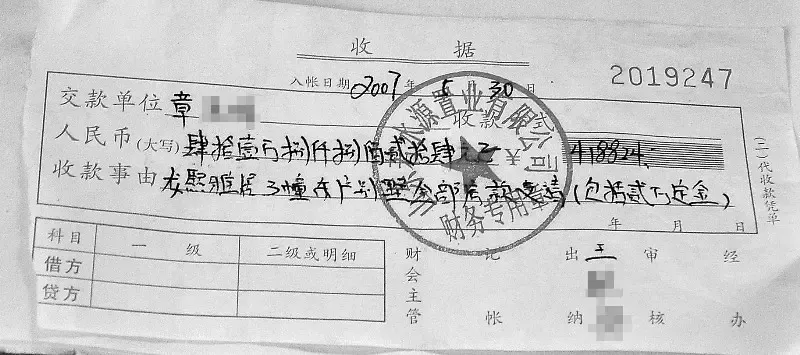 收 据
2019247
入帐日期 2007年 5月30日
交款单位 章
收款 式
人民币(大写) 肆拾壹万捌仟捌佰贰拾肆元正 418824
收款事由 龙熙雅居3幢 别墅全部房款 清(包括贰万定金)
年 月 日
(二)代收款凭单
水源置业有限公司
财务专用章
科目 一 级 二级或明细
借方
贷方
财会主管 记帐 出纳 王 审核 经办